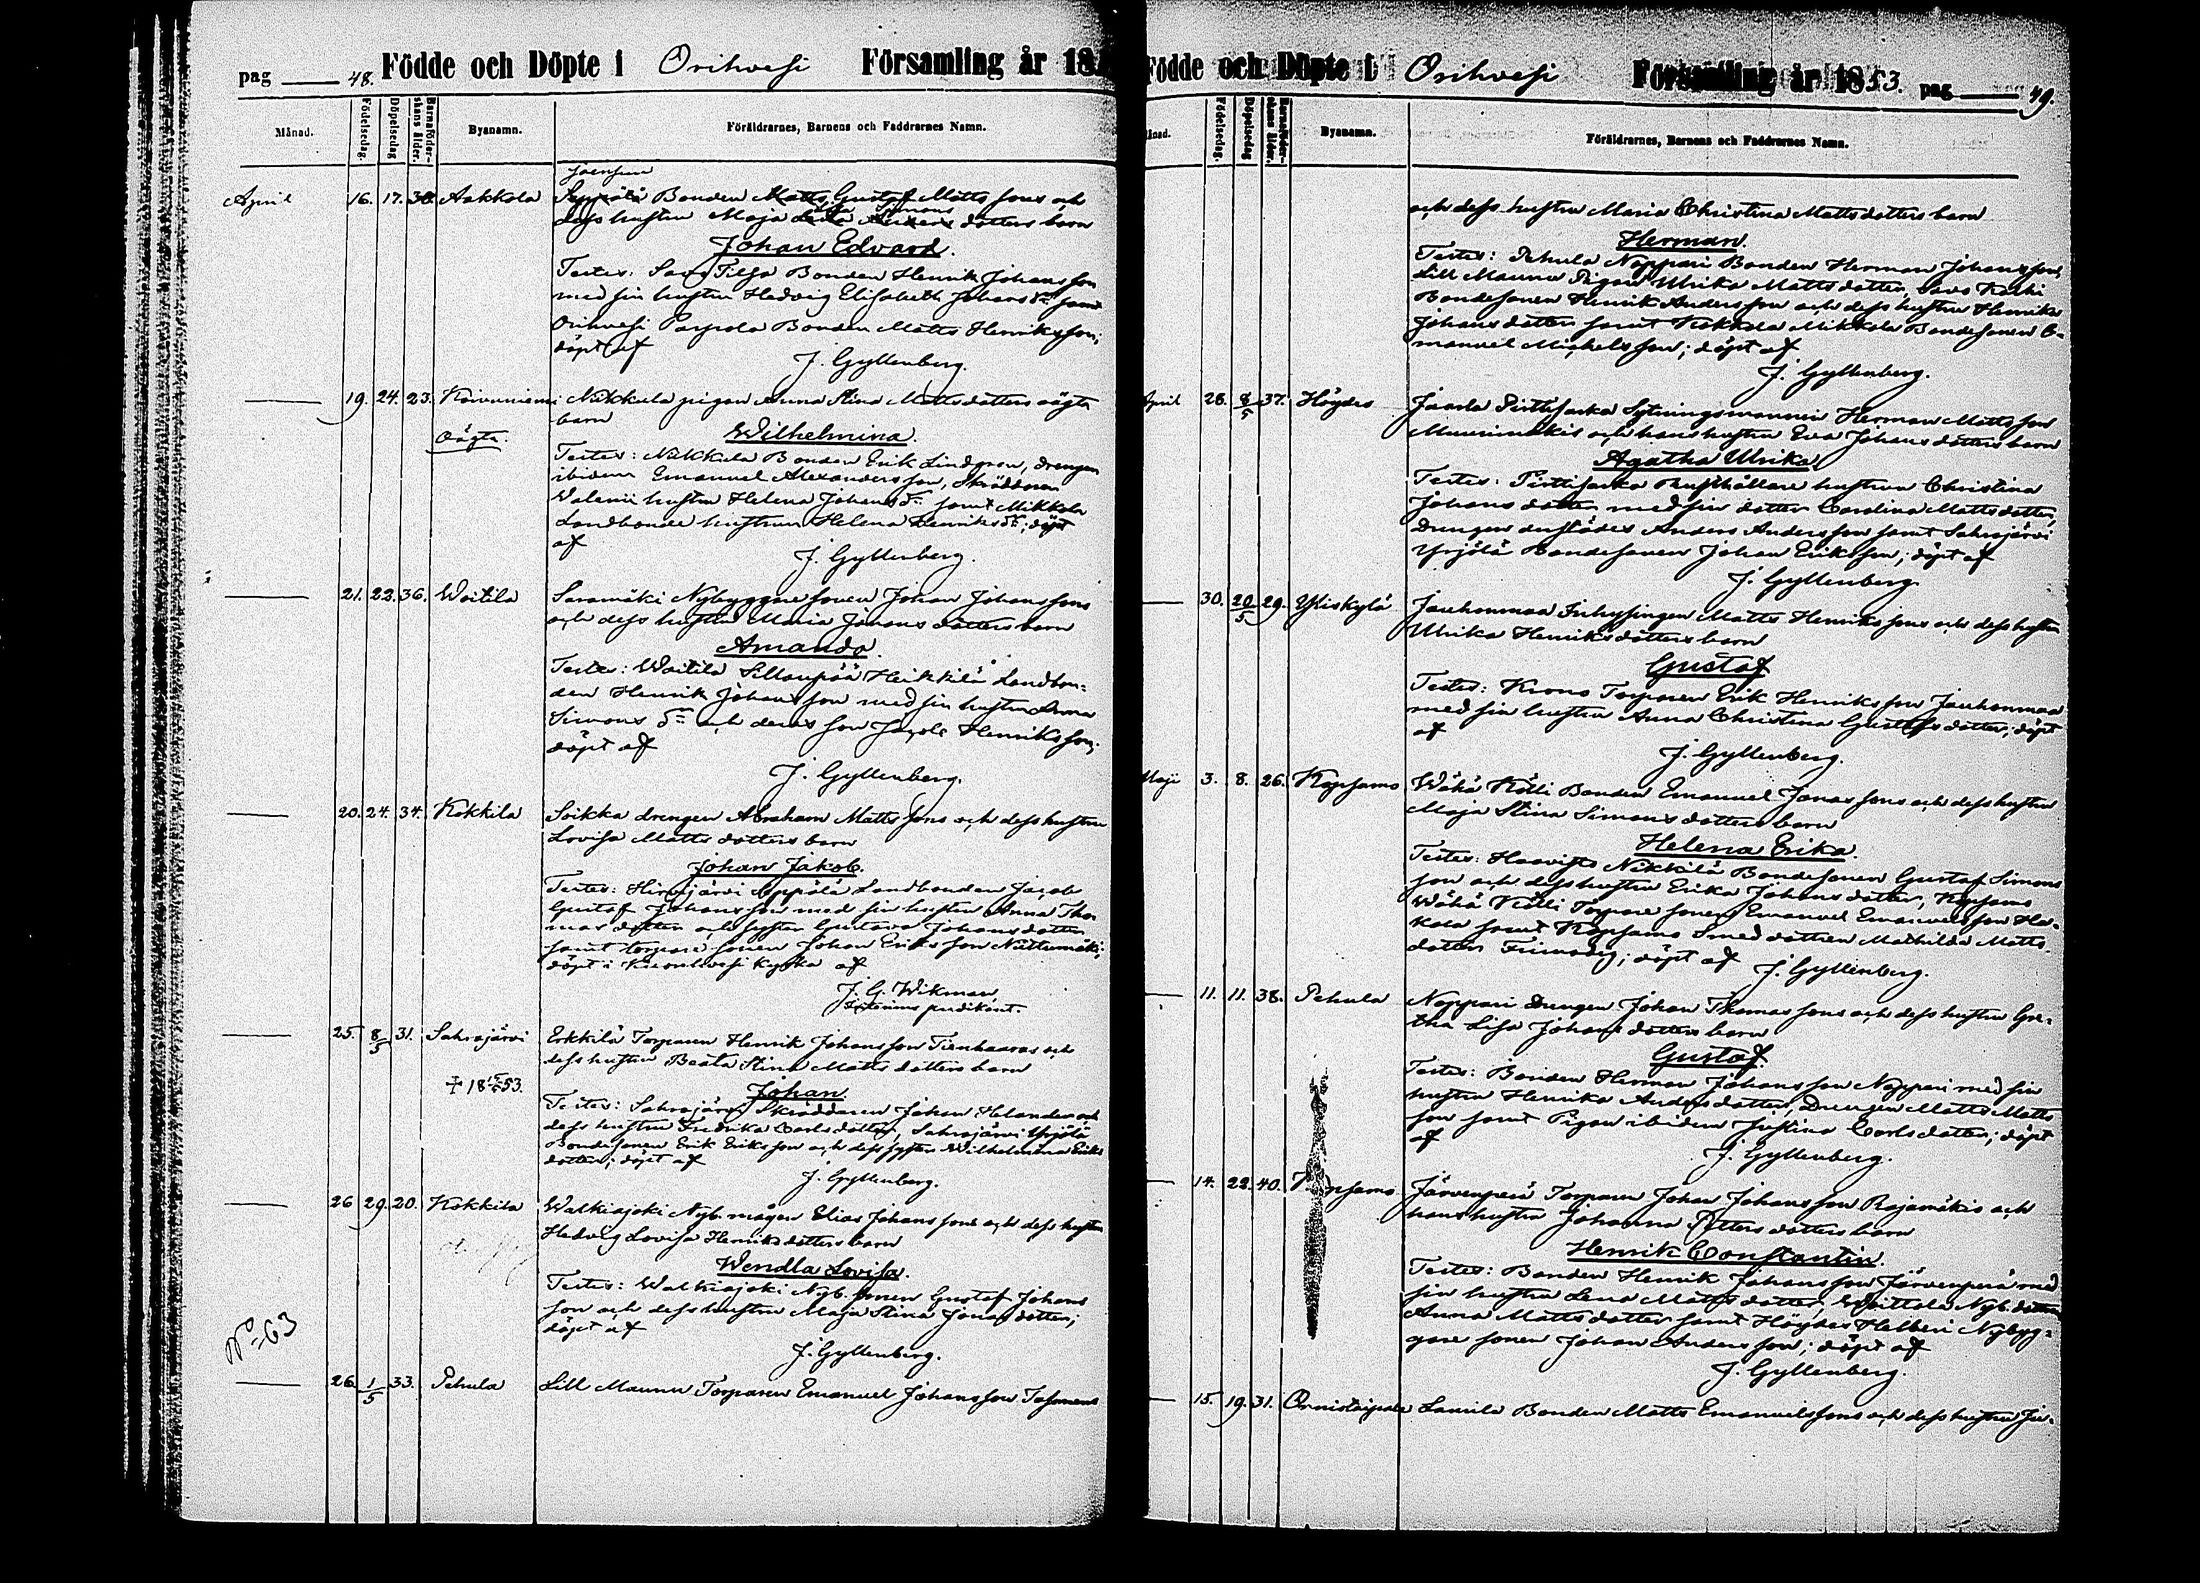 pag 48. Födde och Döpte i Orihvesi Församling år 18
Månad. Födelsedag. Döpelsedag Barnaföderskans ålder. Byanamn. Föräldrarnes, Barnens och Faddrarnes Namn.
April 16. 17. 30. Aakkola Bonden Matts Gustaf Matts sons och
dess hustru Maja dotters barn
Johan Edvard.
Testes: Savo Tilsa Bonden Henrik Johansson
med sin hustru Hedvig Elisabeth Johans dr samt
Orihvesi Pappola Bonden Matts Henriksson;
döpt af
J. Gyllenberg.
19. 24. 23. Koivuniemi Nikkula pigan Anna Stina Mattsdotters oägta
barn
oägta.
Wilhelmina.
Testes: Nikkula Bonden Erik Lindgren, drengen
ibidem Emanuel Alexandersson, Skräddaren
hustru Helena Johans dr samt Mikkola
Landbonde hustrun Helena Henriks dr; döpt
af
J. Gyllenberg.
21. 22. 36. Woitila Saramäki Nybyggare sonen Johan Johanssons
och dess hustru Maria Johans dotters barn
Amanda.
Testes: Woitila Sillanpää Heikkilä Landbon=
den Henrik Johansson med sin hustru Anna
Simons dr och deras son Jacob Henriksson;
döpt af
J. Gyllenberg.
20. 24. 34. Kokkila Soikka drengen Abraham Matts sons och dess hustru
Lovisa Matts dotters barn
Johan Jakob.
Testes: Hirvijärvi Seppälä Landbonden Jacob
Gustaf Johansson med sin hustru Anna Tho
mas dotter och syster Gustava Johansdotter
samt torpare sonen Johan Eriksson
döpt i Kuorehvesi Kyrka af
J. G. Wikman
predikant.
25. 8/5 31. Sahrajärvi Erkkilä Torparen Henrik Johansson Tienhaaras och
dess hustru Beata Stina Matts dotters barn
53.
Johan.
Testes: Sahrajärvi Skräddaren Johan Helander och
dess hustru Fredrika Carlsdotter, Sahrajärvi Yrjölä
Bondesonen Erik Eriksson och dess syster Wilhelmina Eriks
dotter; döpt af
J. Gyllenberg.
26 29. 20. Kokkila Walkiajoki Nyb. mågen Elias Johanssons och dess hustru
Hedvig Lovisa Henriksdotters barn
Wendla Lovisa.
Testes: Walkiajoki Nyb. sonen Gustaf Johans
son och dess hustru Maja Stina Jonasdotter;
döpt af
No 63
J. Gyllenberg.
26. 1/5 33. Pehula Lill Maunu Torparen Emanuel Johansson
Födde och Döpte i Orihvesi Församling år 1853. pag 49.
Månad. Födelsedag. Döpelsedag Barnaföderskans ålder. Byanamn. Föräldrarnes, Barnens och Faddrarnes Namn.
och dess hustru Maria Christina Matts dotters barn
Herman.
Testes: Pehula Noppari Bonden Herman Johansson,
Lill Maunu Pigan Ulrika Mattsdotter, Savo
Bondesonen Henrik Andersson och dess hustru Henrika
Johansdotter samt Kokkola Mikkola Bondesonen E=
manuel Michelsson; döpt af
J. Gyllenberg.
April 28. 8/5 37. Höydes Jaarla Pirttisarka Sytningsmannen Herman Mattsson
Muurimäkis och hans hustru Eva Johansdotters barn
Agatha Ulrika
Testes: Pirttisarka Rusthållare hustrun Christina
Johans dotter med sin dotter Carolina Mattsdotter,
Drengen Anders Andersson samt Sahrajärvi
Yrjölä Bondesonen Johan Eriksson; döpt af
J. Gyllenberg.
30. 20/5 29. Yliskylä Jauhonmaa Inhysingen Matts Henrikssons och dess hustru
Ulrika Henriksdotters barn
Gustaf
Testes: Krono Torparen Erik Henriksson Jauhonmaa
med sin hustru Anna Christina Gustafsdotter; döpt
af
J. Gyllenberg.
Maji 3. 8. 26. Kopsamo Wähä Källi Bonden Emanuel Jonassons och dess hustru
Maja Stina Simonsdotters barn
Helena Erika.
Testes: Haavisto Nikkilä Bondesonen Gustaf Simons
son och dess hustru Erika Johansdotter, Kopsamo
Wähä Källi Torpare sonen Emanuel Emanuelsson
samt Kopsamo Smed dottren Mathilda Matts
dotter; döpt af
J. Gyllenberg.
11. 11. 38. Pehula Noppari Drengen Johan Thomassons och dess hustru Gre=
tha Lisa Johansdotters barn
Gustaf.
Testes: Bonden Herman Johansson Noppari med sin
hustru Henrika Andersdotter, Drengen Matts Matts
son samt Pigan ibidem Justina Carlsdotter; döpt
af
J. Gyllenberg.
14. 22. 40. Kopsamo Järvenperä Torparen Johan Johansson Rajamäkis och
hans hustru Johanna Petters dotters barn
Henrik Constantin.
Testes: Bonden Henrik Johansson Järvenperä med
sin hustru Lena Mattsdotter, Woittola Nyb. dotter
Anna Mattsdotter samt Höydes Helteri Nybyg=
gare sonen Johan Andersson; döpt af
J. Gyllenberg.
15. 19. 31. Onnistaipale Laurila Bonden Matts Emanuelssons och dess hustru